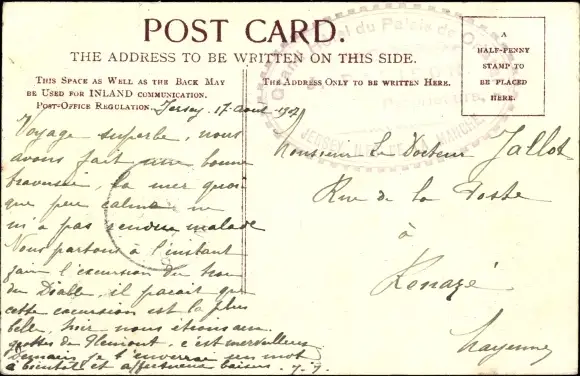 POST CARD.
THE ADDRESS TO BE WRITTEN ON THIS SIDE.
THIS SPACE AS WELL AS THE BACK MAY
BE USED FOR INLAND COMMUNICATION.
POST-OFFICE REGULATION.
THE ADDRESS ONLY TO BE WRITTEN HERE.
A
HALF-PENNY
STAMP TO
BE PLACED
HERE.
Grand Hôtel du Palais de
JERSEY, LA MANCHE
Jersey, 17 aout
Voyage superbe, nous
avons fait une bonne
traversée, la mer quoi
que peu calme ne
m'a pas rendue malade
Nous partons à l'instant
faire l'excursion du trou
du Diable, il parait que
cette excursion est la plus
belle, hier nous étions aux
grottes de Plémont, c'est merveilleux
Demain je t'enverrai un mot
à bientôt et affectueux baisers. J. J.
Monsieur Le Docteur Jallot
Rue de la Poste
à
Renazé
Mayenne